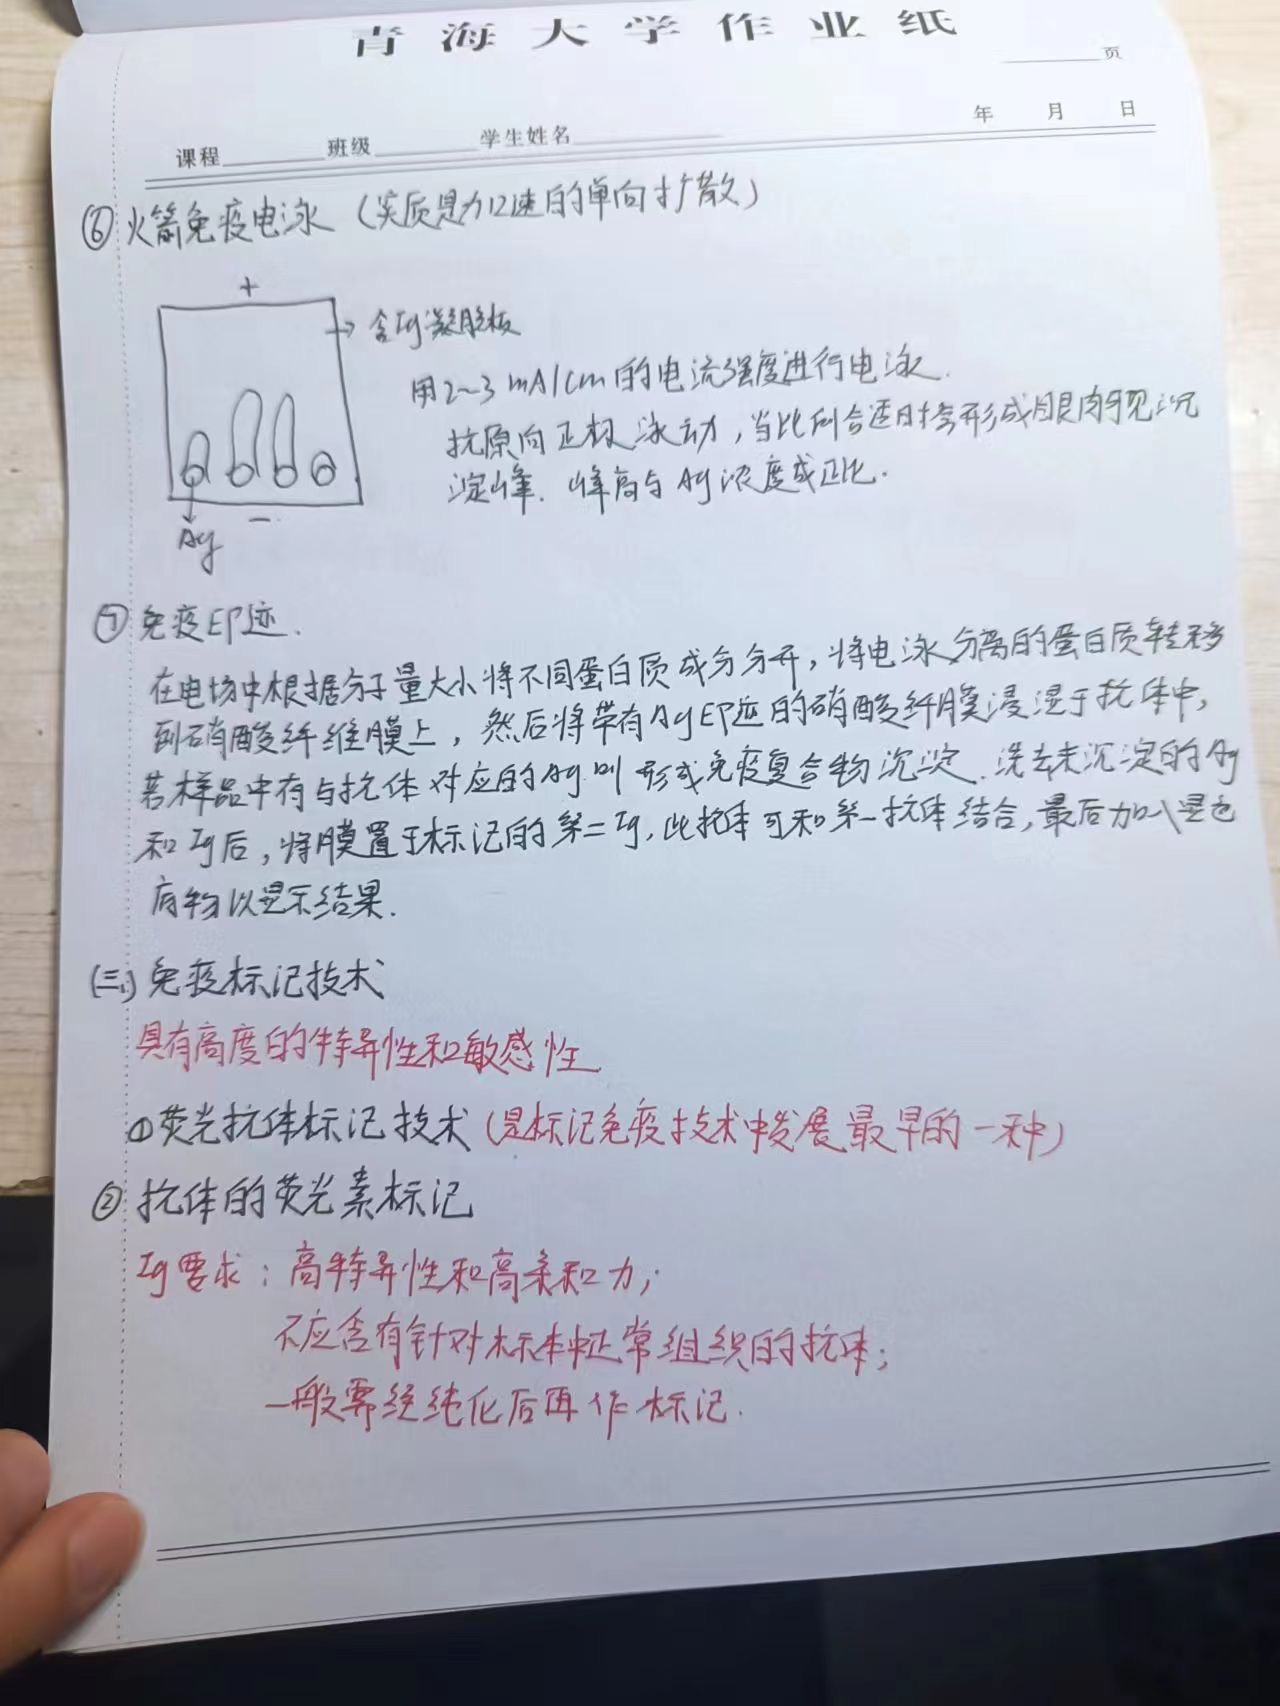 青海大学作业纸
页
年 月 日
课程 班级 学生姓名
⑥火箭免疫电泳（实质是加速的单向扩散）
+
→含Ig凝胶板
用2~3 mA/cm的电流强度进行电泳.
抗原向正极泳动，当比例合适时会形成眼肉可见沉
淀峰.峰高与Ag浓度成正比.
−
Ag
⑦免疫印迹.
在电场中根据分子量大小将不同蛋白质成分分开，将电泳分离的蛋白质转移
到硝酸纤维膜上，然后将带有Ag印迹的硝酸纤膜浸湿于抗体中，
若样品中有与抗体对应的Ag则形成免疫复合物沉淀.洗去未沉淀的Ag
和Ig后，将膜置于标记的第二Ig，此抗体可和第一抗体结合，最后加入显色
底物以显示结果.
(三)免疫标记技术
具有高度的特异性和敏感性
①荧光抗体标记技术（是标记免疫技术中发展最早的一种）
②抗体的荧光素标记
Ig要求：高特异性和高亲和力；
不应含有针对标本中正常组织的抗体；
一般需经纯化后再作标记.